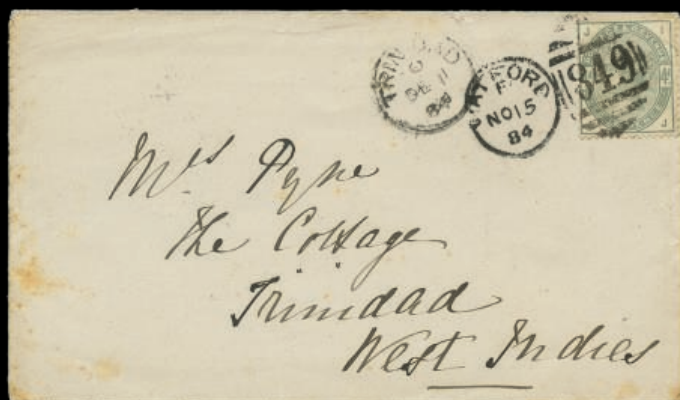 TRINIDAD
DE 11
84
WATFORD
NO 15
84
849
Mrs Pyne
The Cottage
Trinidad
West Indies